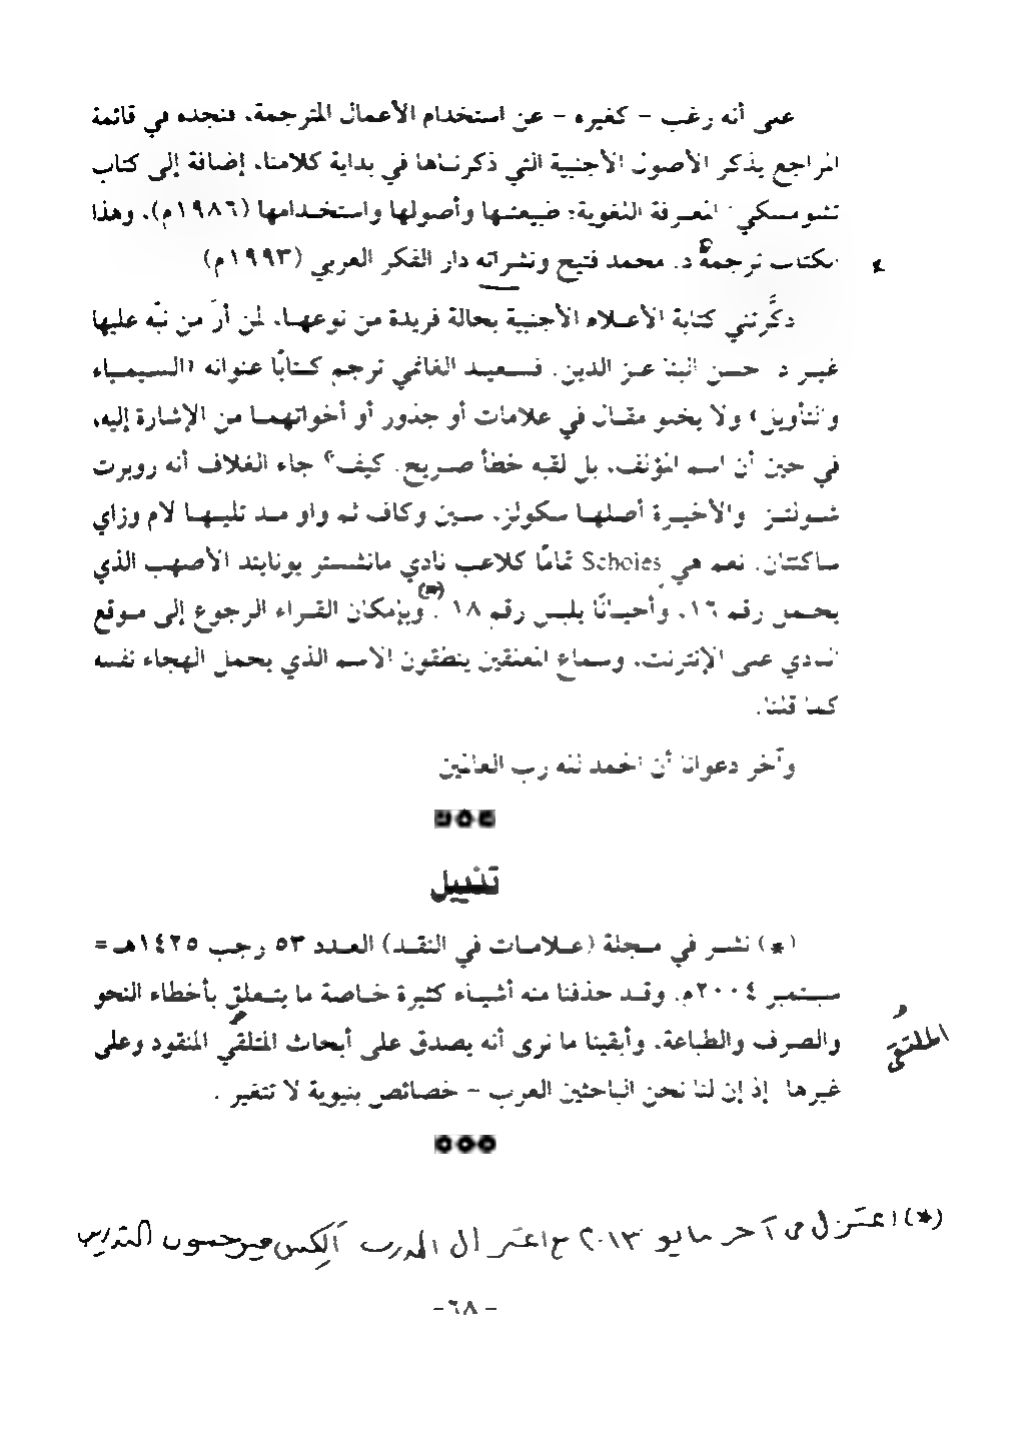 على أنه رغب - كغيره - عن استخدام الأعمال المترجمة، فنجده في قائمة
المراجع يذكر الأصول الأجنبية التي ذكرناها في بداية كلامنا، إضافة إلى كتاب
تشومسكي: المعرفة اللغوية: طبيعتها وأصولها واستخدامها (١٩٨٦م)، وهذا
الكتاب ترجمة د. محمد فتيح ونشراته دار الفكر العربي (١٩٩٣م)
ذكَّرتني كتابة الأعلام الأجنبية بحالة فريدة من نوعها، لمن أرَ من نبّه عليها
غير د. حسن البنا عز الدين. فسعيد الغانمي ترجم كتابًا عنوانه «السيمياء
والتأويل» ولا يخلو مقال في علامات أو جذور أو أخواتهما من الإشارة إليه،
في حين أن اسم المؤلف، بل لقبه خطأ صريح. كيف؟ جاء الغلاف أنه روبرت
شولتز والأخيرة أصلها سكولز، سين وكاف ثم واو مد تليها لام وزاي
ساكنتان. نعم هي Scholes تمامًا كلاعب نادي مانشستر يونايتد الأصهب الذي
يحمل رقم ١٦، وأحيانًا يلبس رقم ١٨(*). وبإمكان القراء الرجوع إلى موقع
النادي على الإنترنت، وسماع المعلقين ينطقون الاسم الذي يحمل الهجاء نفسه
كما قلنا.
وآخر دعوانا أن الحمد لله رب العالمين
تذييل
(*) نشر في مجلة (علامات في النقد) العدد ٥٣ رجب ١٤٢٥هـ =
سبتمبر ٢٠٠٤م. وقد حذفنا منه أشياء كثيرة خاصة ما يتعلق بأخطاء النحو
والصرف والطباعة، وأبقينا ما نرى أنه يصدق على أبحاث المتلقي المنقود وعلى
الملتقى
غيرها إذ إن لنا نحن الباحثين العرب - خصائص بنيوية لا تتغير .
(*) اعتزل في آخر مايو ٢٠١٣ مع اعتزال المدرب أليكس فيرجسون التدريس
-٦٨-